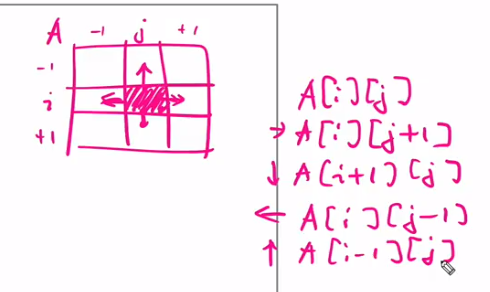 A -1 j +1
-1
i
+1
A[i][j]
→ A[i][j+1]
↓ A[i+1][j]
← A[i][j-1]
↑ A[i-1][j]